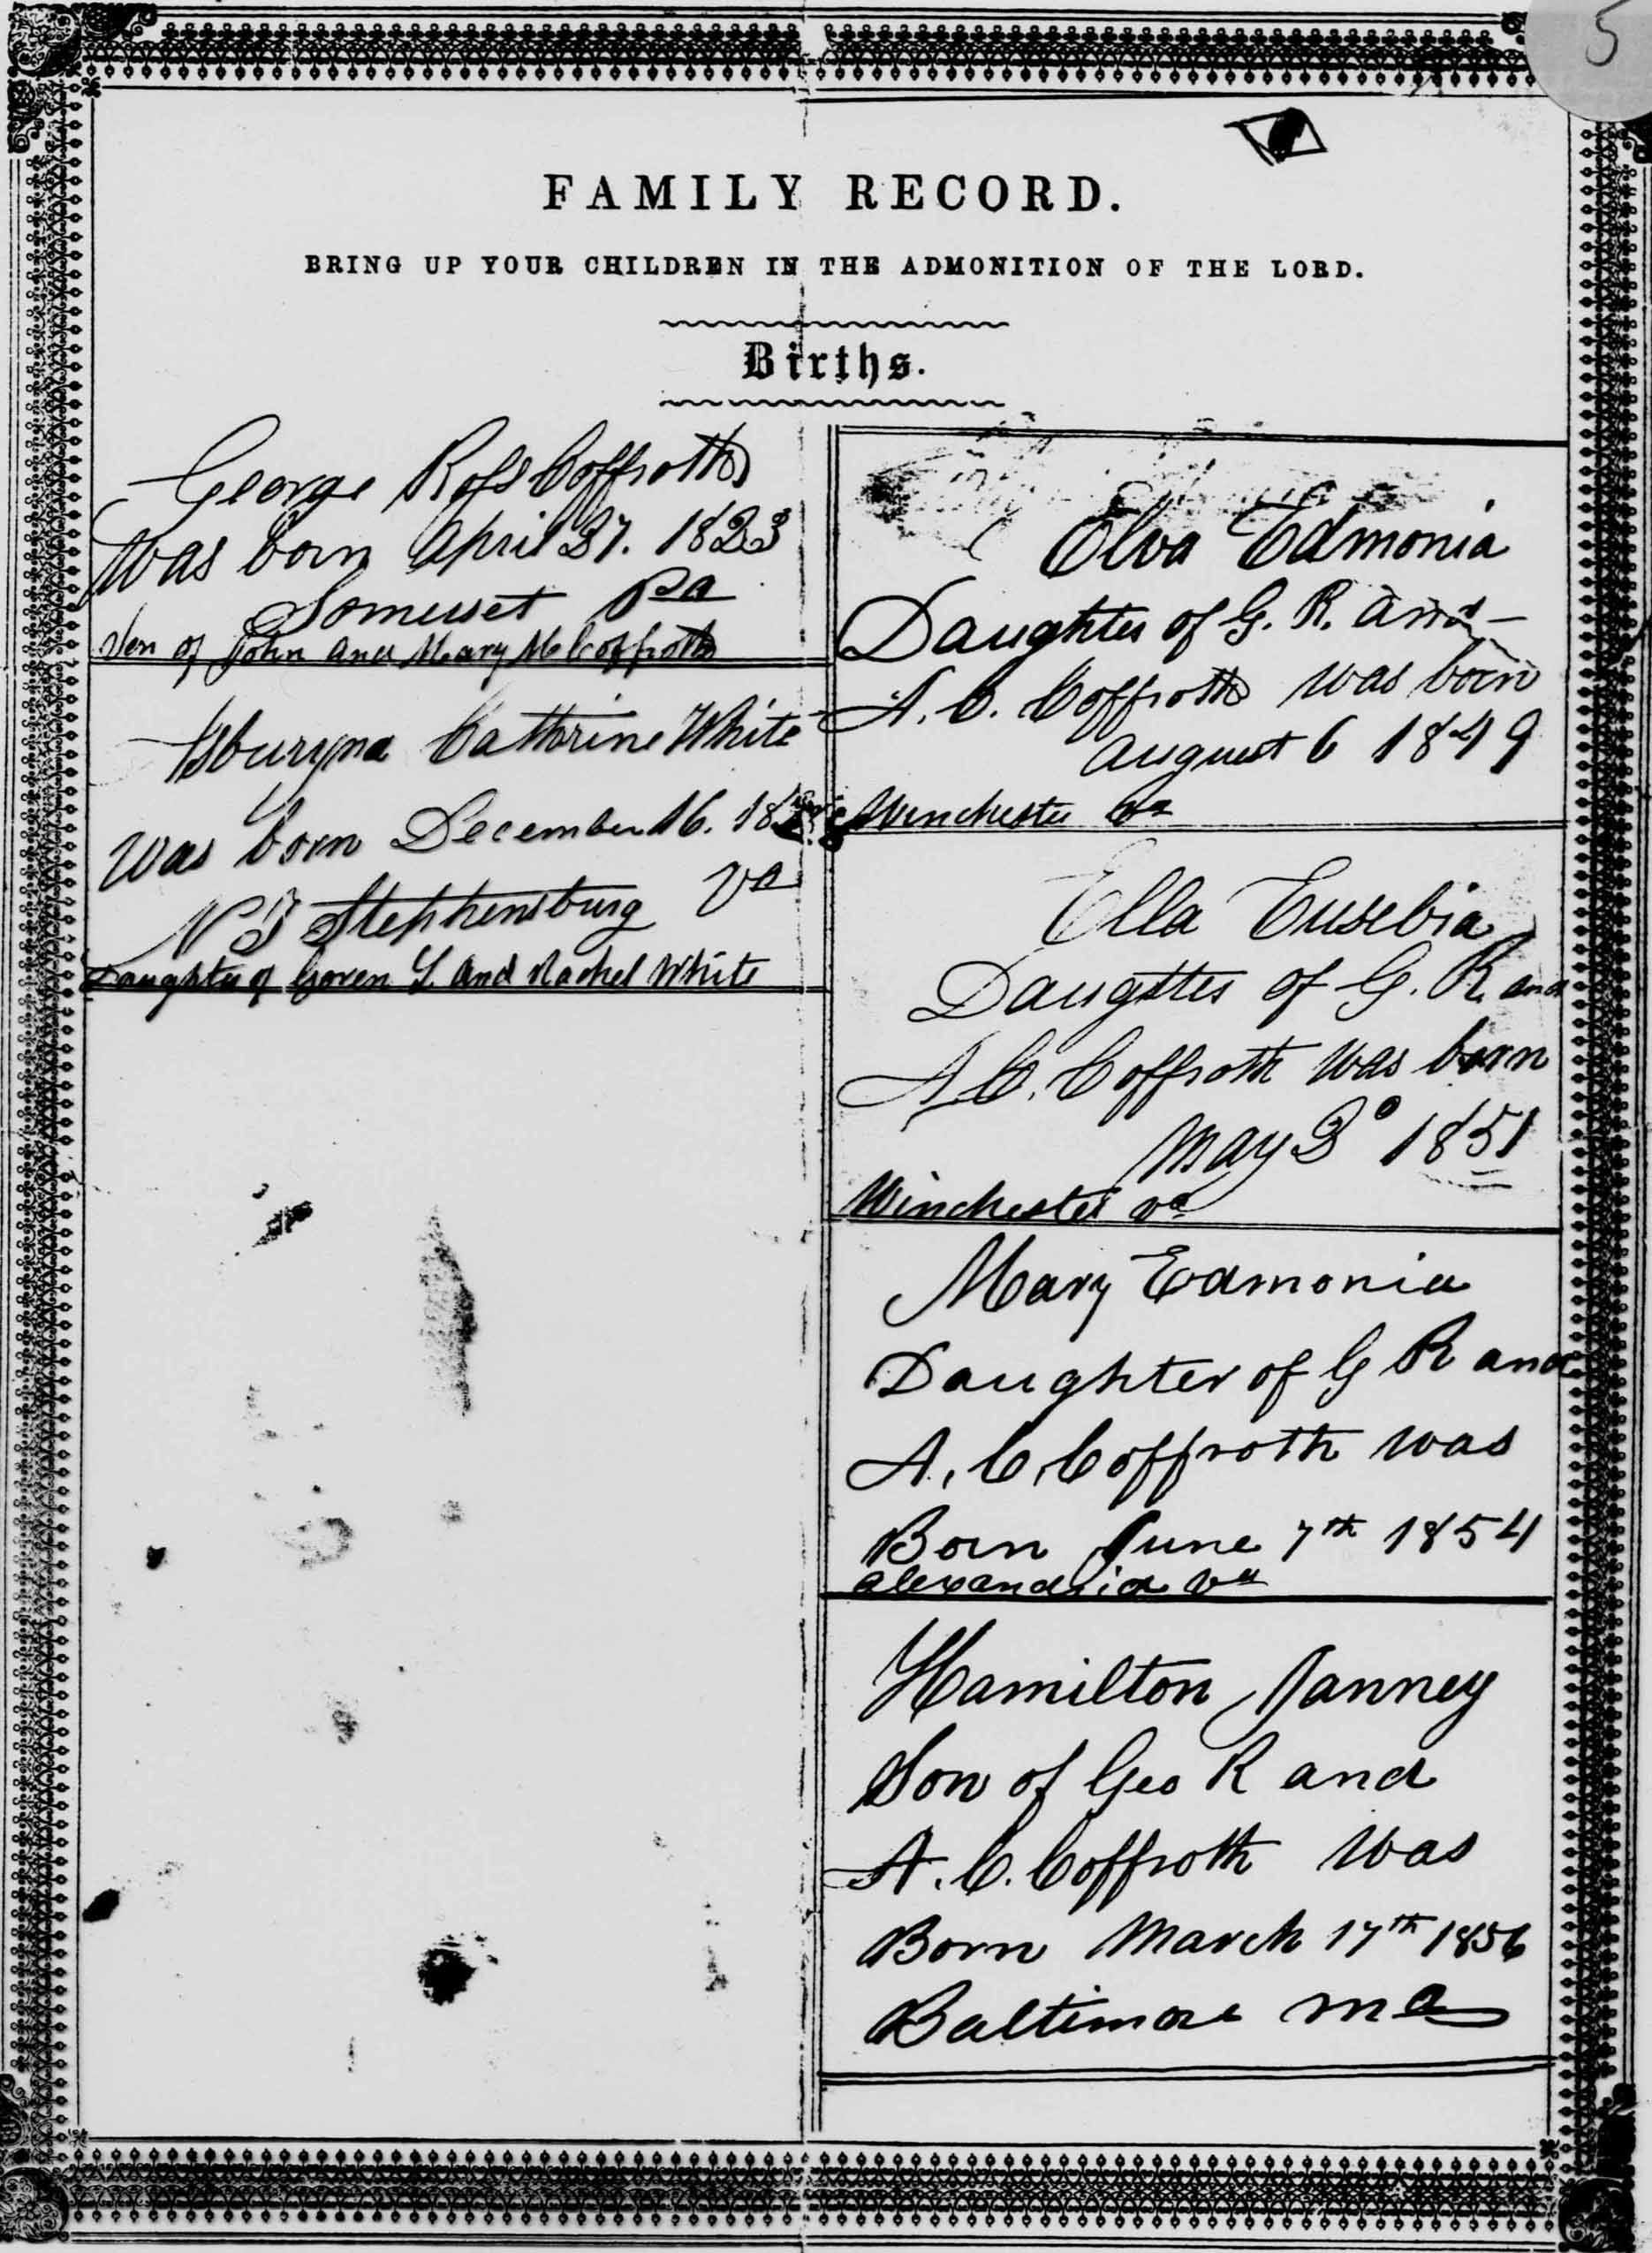 5
FAMILY RECORD.
BRING UP YOUR CHILDREN IN THE ADMONITION OF THE LORD.
Births.
George Ross Coffroth
was born April 27. 1823
Somerset Pa
Son of John and Mary M Coffroth
Asburyna Cathrine White
was born December 16. 18
N T Stephensburg Va
Daughter of L. and Rachel White
Elva Edmonia
Daughter of G. R. and
A. C. Coffroth was born
August 6 1849
Winchester Va
Ella Eusebia
Daughter of G. R. and
A. C. Coffroth was born
May 3 1851
Winchester Va
Mary Edmonia
Daughter of G R and
A. C. Coffroth was
Born June 7th 1854
Alexandria Va
Hamilton Janney
Son of Geo R and
A. C. Coffroth was
Born March 17th 1856
Baltimore Md